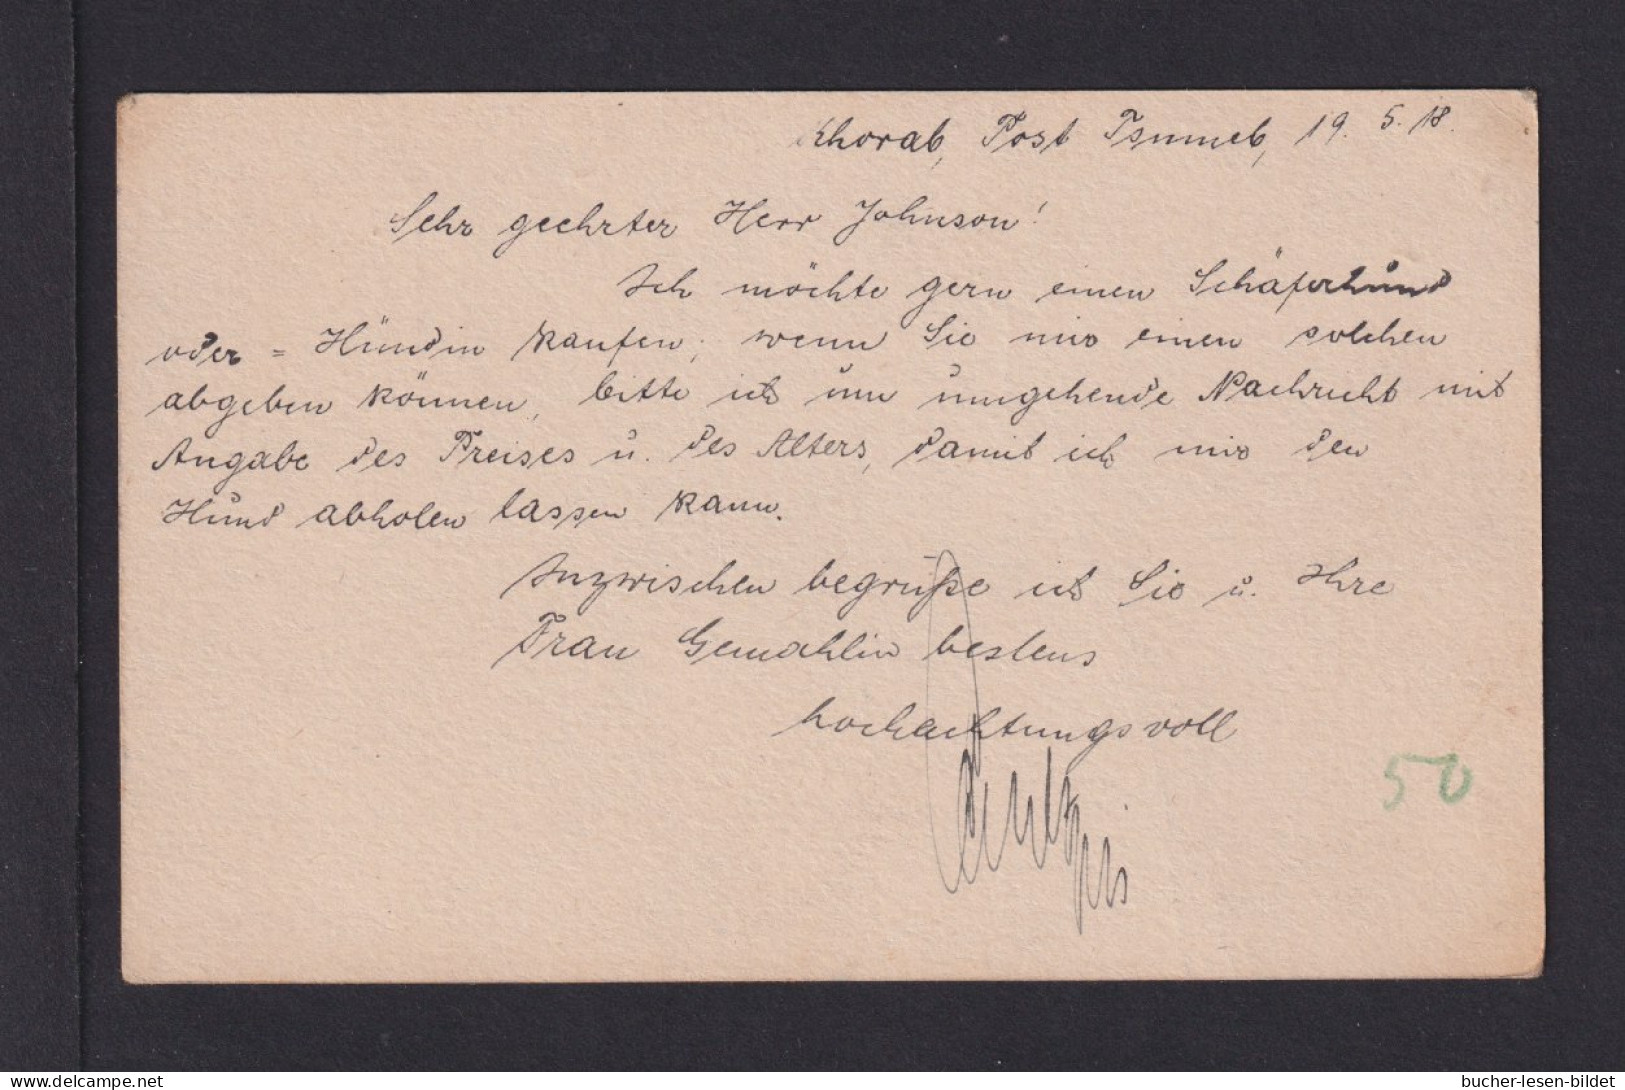 Khorab, Post Tsumeb, 19. 5. 18.
Sehr geehrter Herr Johnson!
Ich möchte gern einen Schäferhund
oder = Hündin kaufen; wenn Sie mir einen solchen
abgeben können, bitte ich um umgehende Nachricht mit
Angabe des Preises u. des Alters, damit ich mir den
Hund abholen lassen kann.
Inzwischen begrüße ich Sie u. Ihre
Frau Gemahlin bestens
hochachtungsvoll
50
bucher-lesen-bildet